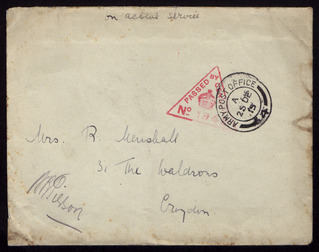 on active service
PASSED BY
No
ARMY POST OFFICE
A
25 DE
15
4
Mrs. R.
31 The Waldrons
Croydon